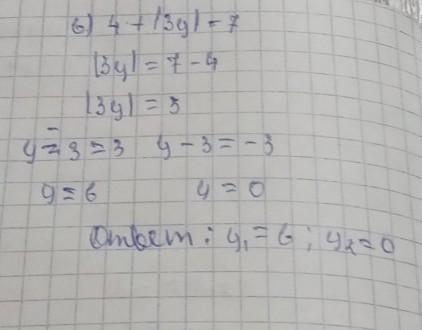 б) 4 + |3y| = 7
|3y| = 7 - 4
|3y| = 3
y - 3 = 3   y - 3 = -3
y = 6   y = 0
Ответ: y₁ = 6; y₂ = 0